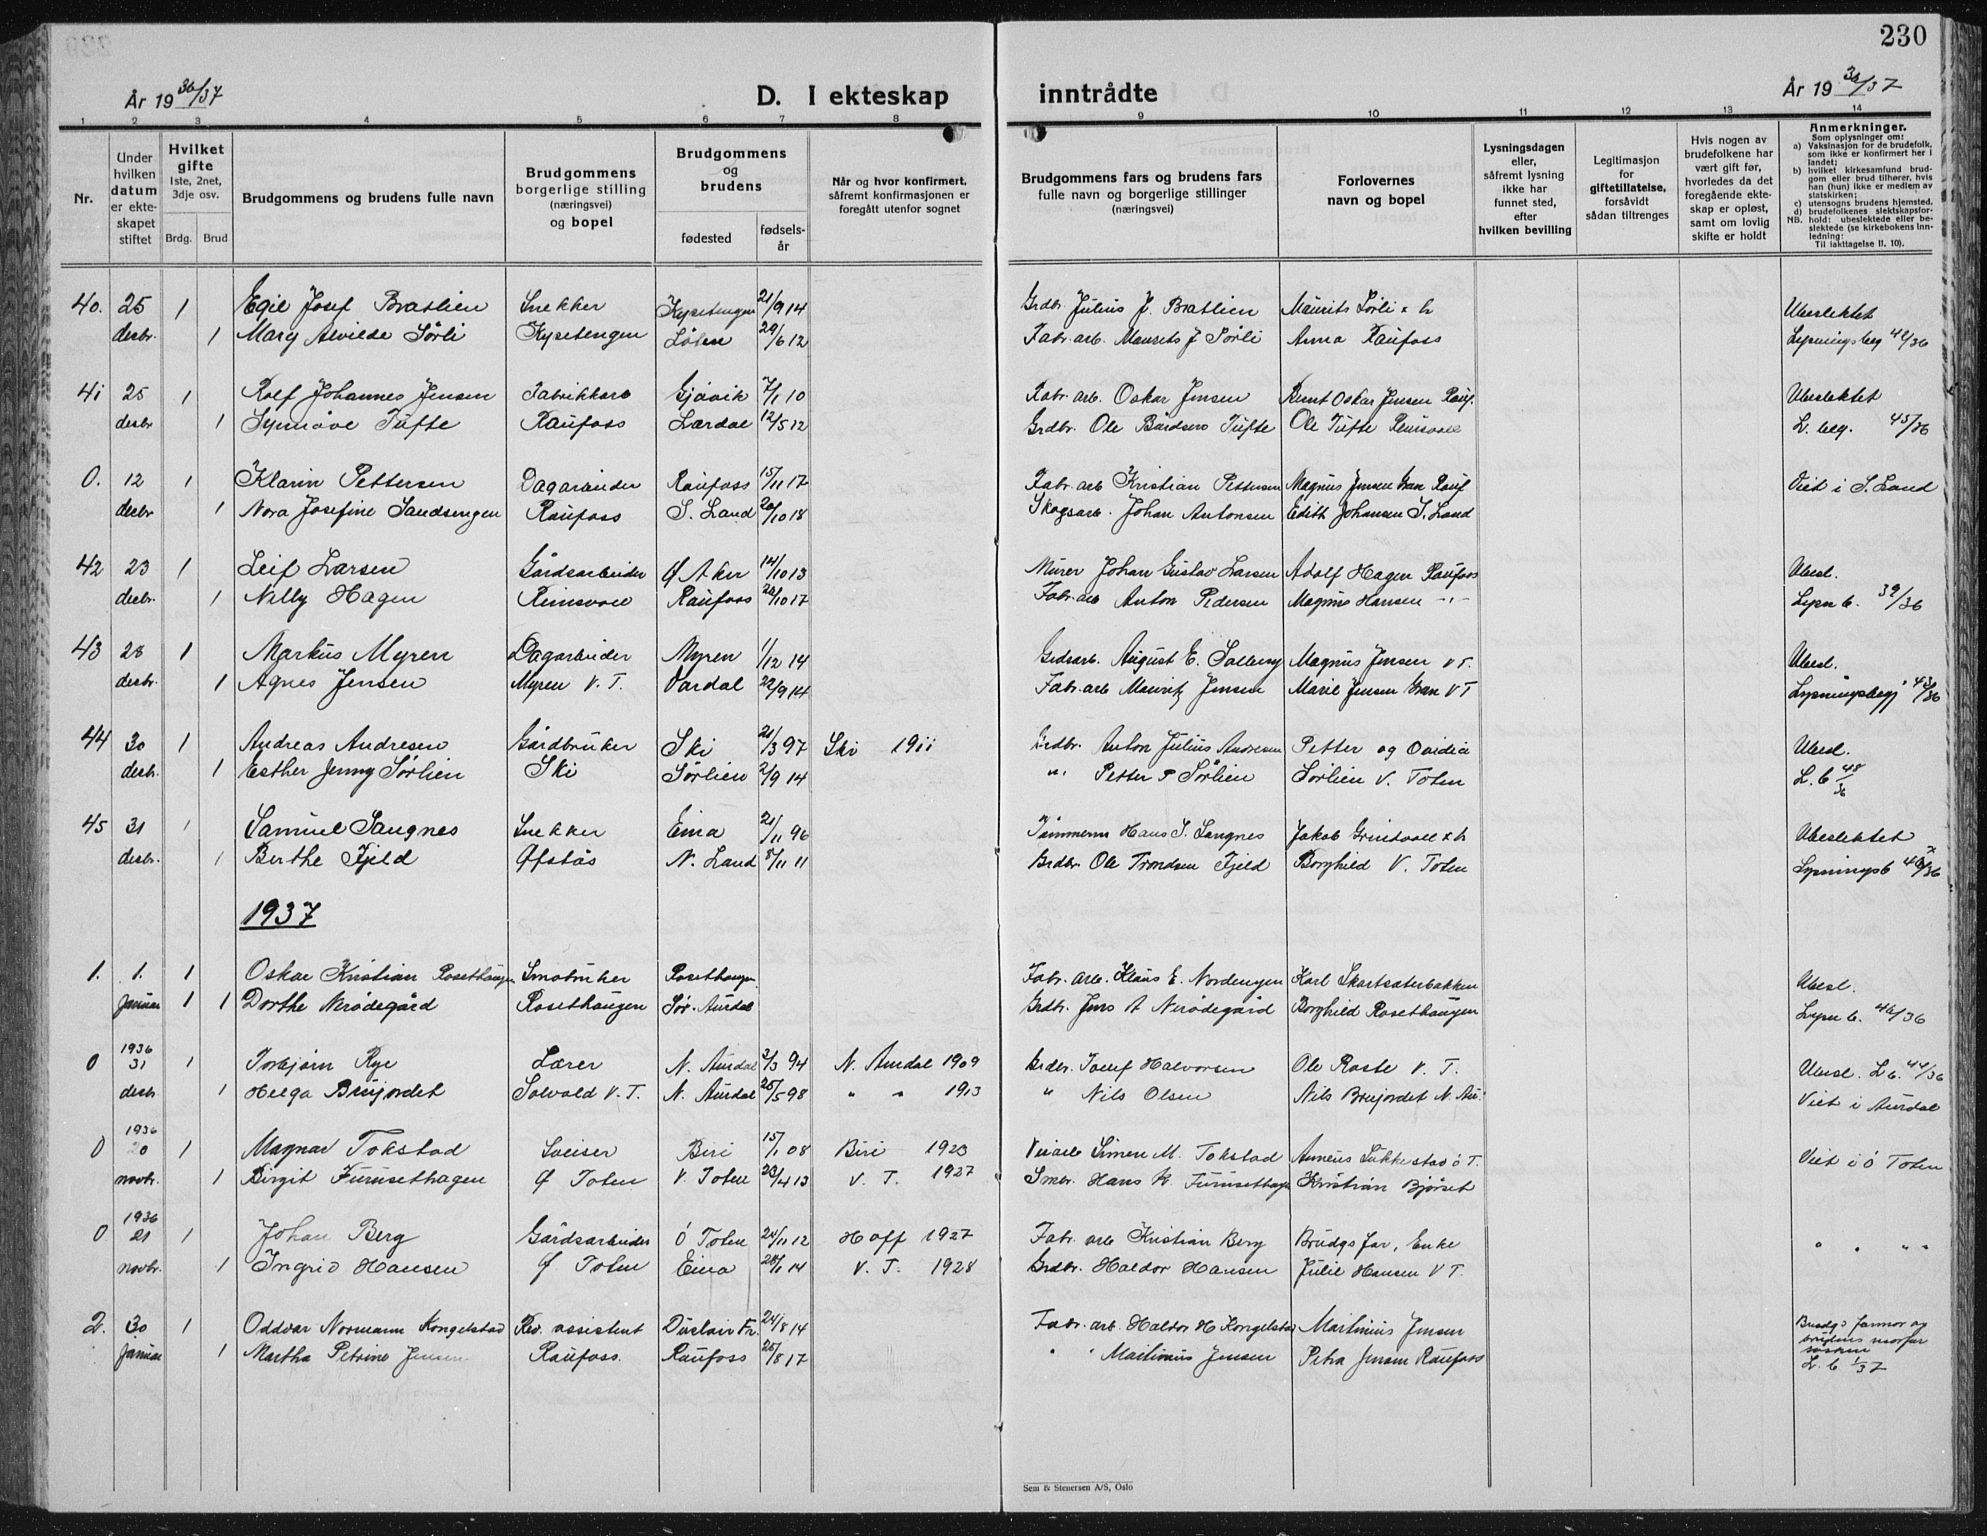 230
År 19 36/37
D. I ekteskap
inntrådte
År 19 36/37
1 2 3 4 5 6 7 8
9 10 11 12 13 14
Nr.
Under hvilken datum er ekteskapet stiftet
Hvilket gifte
1ste, 2net, 3dje osv.
Brdg. Brud
Brudgommens og brudens fulle navn
Brudgommens borgerlige stilling (næringsvei) og bopel
Brudgommens og brudens
fødested
fødselsår
Når og hvor konfirmert, såfremt konfirmasjonen er foregått utenfor sognet
Brudgommens fars og brudens fars fulle navn og borgerlige stillinger (næringsvei)
Forlovernes navn og bopel
Lysningsdagen eller, såfremt lysning ikke har funnet sted, efter hvilken bevilling
Legitimasjon for giftetillatelse, forsåvidt sådan tiltrenges
Hvis nogen av brudefolkene har vært gift før, hvorledes da det foregående ekteskap er opløst, samt om lovlig skifte er holdt
Anmerkninger.
Som oplysninger om:
a) Vaksinasjon for de brudefolk, som ikke er konfirmert her i landet;
b) hvilket kirkesamfund brudgom eller brud tilhører, hvis han (hun) ikke er medlem av statskirken;
c) utensogns brudens hjemsted.
d) brudefolkenes slektskapsforhold: ubeslektede eller beslektede (se kirkebokens Innledning:
NB.
Til iakttagelse II. 10).
40. 25 1 Egil Josef Bratlien Snekker Kysetengen 21/9 14 Grdbr. Julius J. Bratlien Maurits Sörli Ubeslektet
desbr. 1 Mary Alvilde Sörli Kysetengen Löten 29/6 12 Fabr. arb. Maurits J Sörli Anna Raufoss
41 25 1 Rolf Johannes Jensen Fabrikkarb Gjövik 7/1 10 Fabr. arb. Oskar Jensen Bernt Oskar Jensen Rauf. Ubeslektet
desbr 1 Synnöve Tufte Raufoss Lærdal 12/5 12 Grdbr. Ole Bårdsen Tufte Ole Tufte L. beg. 45/36
0. 12 1 Klarin Pettersen Dagarbeider Raufoss 15/11 17 Fabr. arb Kristian Pettersen Magnus Jensen Rauf Viet i S. Land
desbr 1 Nora Josefine Sandsengen Raufoss S. Land 20/10 18 Skogsarb. Johan Antonsen Edith Johansen S. Land
42 23 1 Leif Larsen Gårdsarbeider Ø Aker 14/10 13 Murer Johan Gustav Larsen Adolf Hagen Raufoss Ubesl.
desbr. 1 Nelly Hagen Reinsvoll Raufoss 10 17 Fabr. arb Anton Pedersen Magnus Hansen -"- Lysn b. 39/36
43 28 1 Markus Myren Dagarbeider Myren 1/12 14 Grdsarb. August E. Solberg Magnus Jensen V T. Ubesl.
desbr. 1 Agnes Jensen Myren V. T. Vardal 22/9 14 Fabr. arb Mauritz Jensen Marie Jensen V T 43/36
44 30 1 Andreas Andresen Gårdbruker Ski 21/3 97 Ski 1911 Grdbr. Anton Julius Andresen Petter og Ovidia Ubesl.
desb. 1 Esther Jenny Sörlien Ski Sörlien 2/9 14 " Petter P Sörlien Sörlien V. Toten L. b 48/36
45 31 1 Samuel Sangnes Snekker Eina 21/11 96 Tömmerm Hans S. Sangnes Jakob Ubeslektet
desbr. 1 Berthe Fjeld Øfstås N. Land 8/11 11 Grdbr. Ole Trondsen Fjeld Borghild V. Toten
1937
1. 1. 1 Oskar Kristian Rosethaugen Småbruker Rosethaugen Fabr. arb. Klaus E. Nordengen Karl Skartsæterbakken Ubesl.
januar 1 1 Dorthe Nerödegård Rosethaugen Sör-Aurdal Grdbr. Jens A Nerödegård Borghild Rosethaugen Lysn b. 46/36
1936
0 31 1 Torbjörn Rye Lærer N. Aurdal 2/3 94 N. Aurdal 1909 Grdbr. Josef Halvorsen Ole Roste V. T. Ubesl. L b. 44/36
desbr 1 Helga Brujordet Solvold V. T. N. Aurdal 25/5 98 " " 1913 " Nils Olsen Nils Brujordet N. Au. Viet i Aurdal
1936
0 20 1 Magnar Tokstad Sveiser Biri 15/1 08 Biri 1923 Veiarb Simen M. Tokstad Viet i Ö Toten
novbr. 1 Birgit Furusethagen Ø Toten V. Toten 23/4 13 V. T. 1927 Smbr. Hans K. Furusethagen Kristian Bjørset
1936
0 21 1 Johan Berg Gårdsarbeider Ö Toten 24/11 12 Hoff 1927 Fabr. arb Kristian Berg Brudgs far, Enke " " " "
novbr. 1 Ingrid Hansen Ø Toten Eina 28/1 14 V. T. 1928 Grdbr. Haldor Hansen Julie Hansen V T.
2. 30 1 Oddvar Normann Kongelstad Rev. assistent Duclair Fr. 24/8 14 Fabr. arb. Haldor H Kongelstad Martinius Jensen Brudgs farmor og brudens morfar søsken
januar 1 Martha Petrine Jensen Raufoss. Raufoss 25/8 17 " " Martinius Jensen Petra Jensen Raufoss L. b 1/37
Sem & Stenersen A/S, Oslo